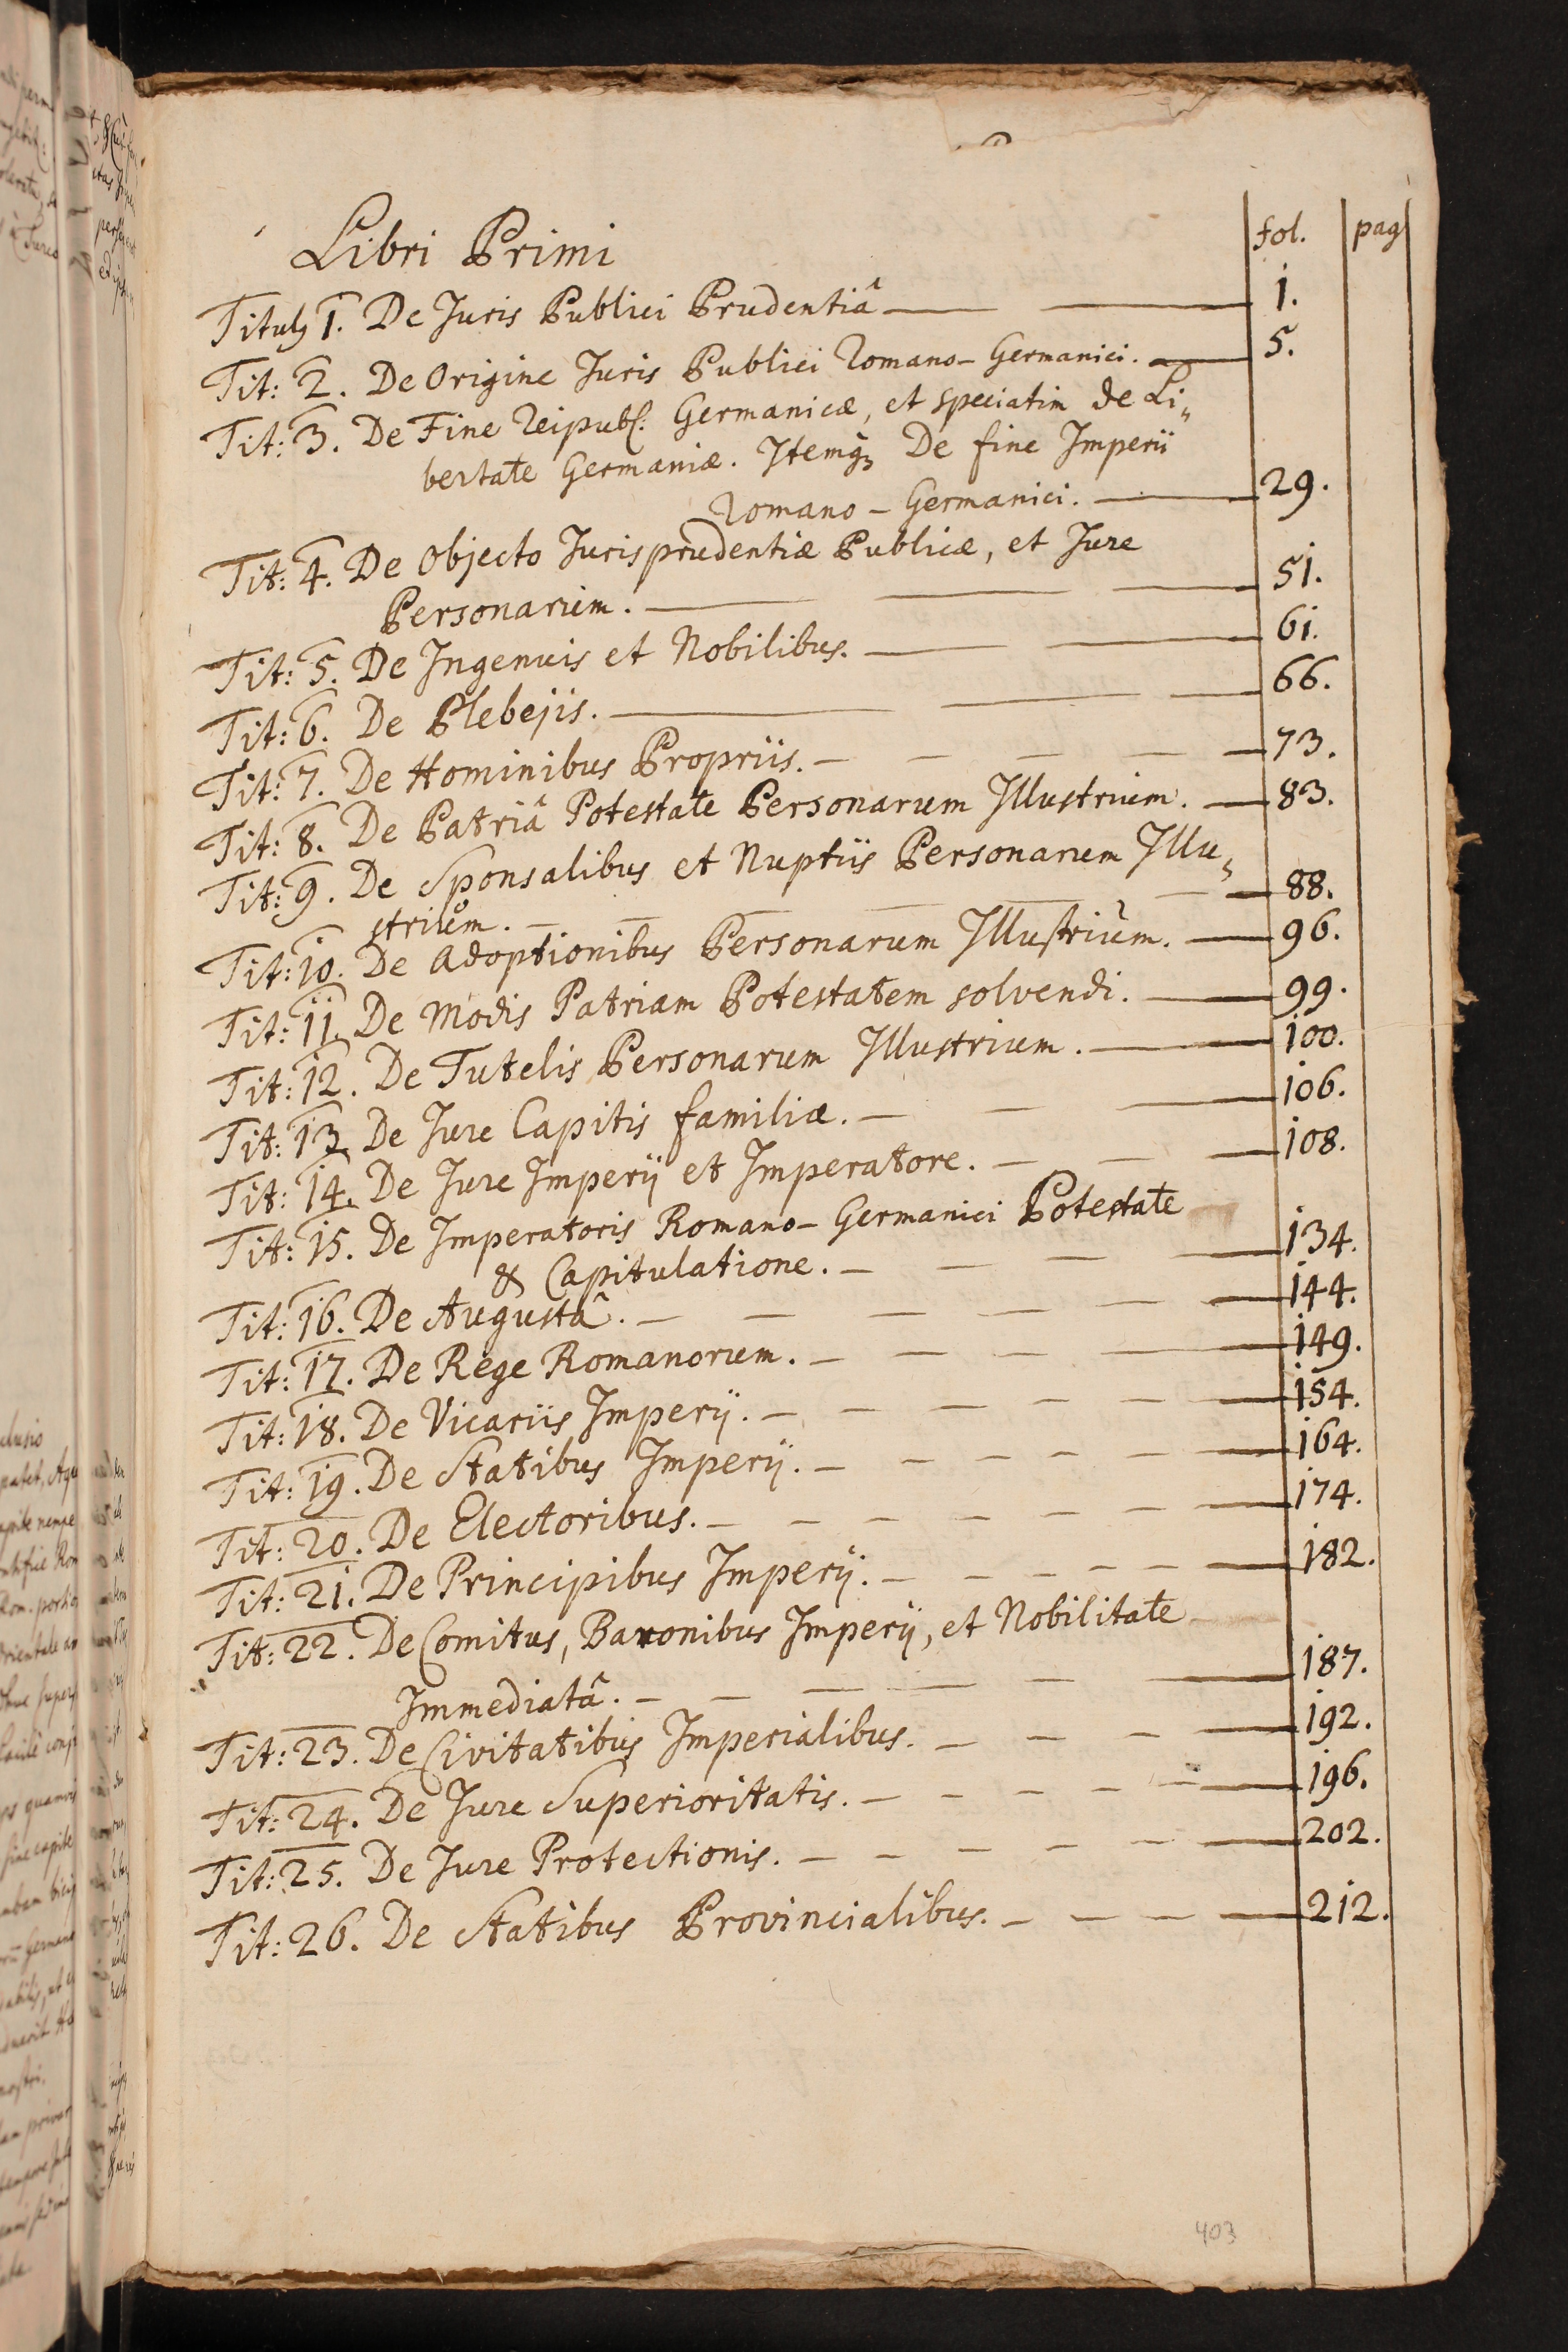 fol. pag
Libri Primi
Tituly 1. De Juris Publici Prudentiâ 1.
Tit: 2. De Origine Juris Publici Romano-Germanici. 5.
Tit: 3. De Fine Reipubl: Germanicæ, et speciatim de Li„
bertate Germaniæ. Itemq₃ De fine Imperii
Romano-Germanici. 29.
Tit: 4. De Objecto Jurisprudentiæ Publicæ, et Jure
Personarum. 51.
Tit: 5. De Ingenuis et Nobilibus. 61.
Tit: 6. De Plebejis. 66.
Tit: 7. De Hominibus Propriis. 73.
Tit: 8. De Patriâ Potestate Personarum Illustrium. 83.
Tit: 9. De Sponsalibus et Nuptiis Personarum Illu„
strium. 88.
Tit: 10. De Adoptionibus Personarum Illustrium. 96.
Tit: 11. De Modis Patriam Potestatem solvendi. 99.
Tit: 12. De Tutelis Personarum Illustrium. 100.
Tit: 13. De Jure Capitis familiæ. 106.
Tit: 14. De Jure Imperij et Imperatore. 108.
Tit: 15. De Imperatoris Romano-Germanici Potestate
& Capitulatione. 134.
Tit: 16. De Augustâ. 144.
Tit: 17. De Rege Romanorum. 149.
Tit: 18. De Vicariis Imperij. 154.
Tit: 19. De Statibus Imperij. 164.
Tit: 20. De Electoribus. 174.
Tit: 21. De Principibus Imperij. 182.
Tit: 22. De Comitus, Baronibus Imperij, et Nobilitate
Immediatâ. 187.
Tit: 23. De Civitatibus Imperialibus. 192.
Tit: 24. De Jure Superioritatis. 196.
Tit: 25. De Jure Protectionis. 202.
Tit: 26. De Statibus Provincialibus. 212.
403